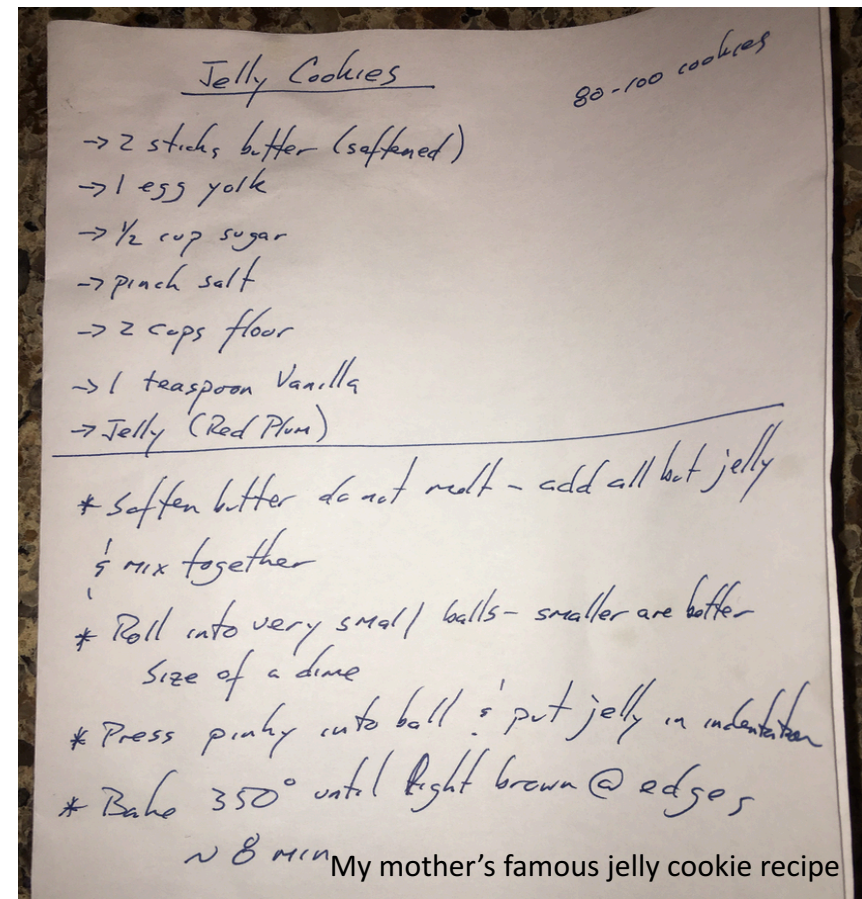 Jelly Cookies
80-100 cookies
→ 2 sticks butter (softened)
→ 1 egg yolk
→ 1/2 cup sugar
→ pinch salt
→ 2 cups flour
→ 1 teaspoon Vanilla
→ Jelly (Red Plum)
* Soften butter do not melt - add all but jelly
& mix together
* Roll into very small balls - smaller are better
size of a dime
* Press pinky into ball & put jelly in indentation
* Bake 350° until light brown @ edges
~ 8 min
My mother's famous jelly cookie recipe